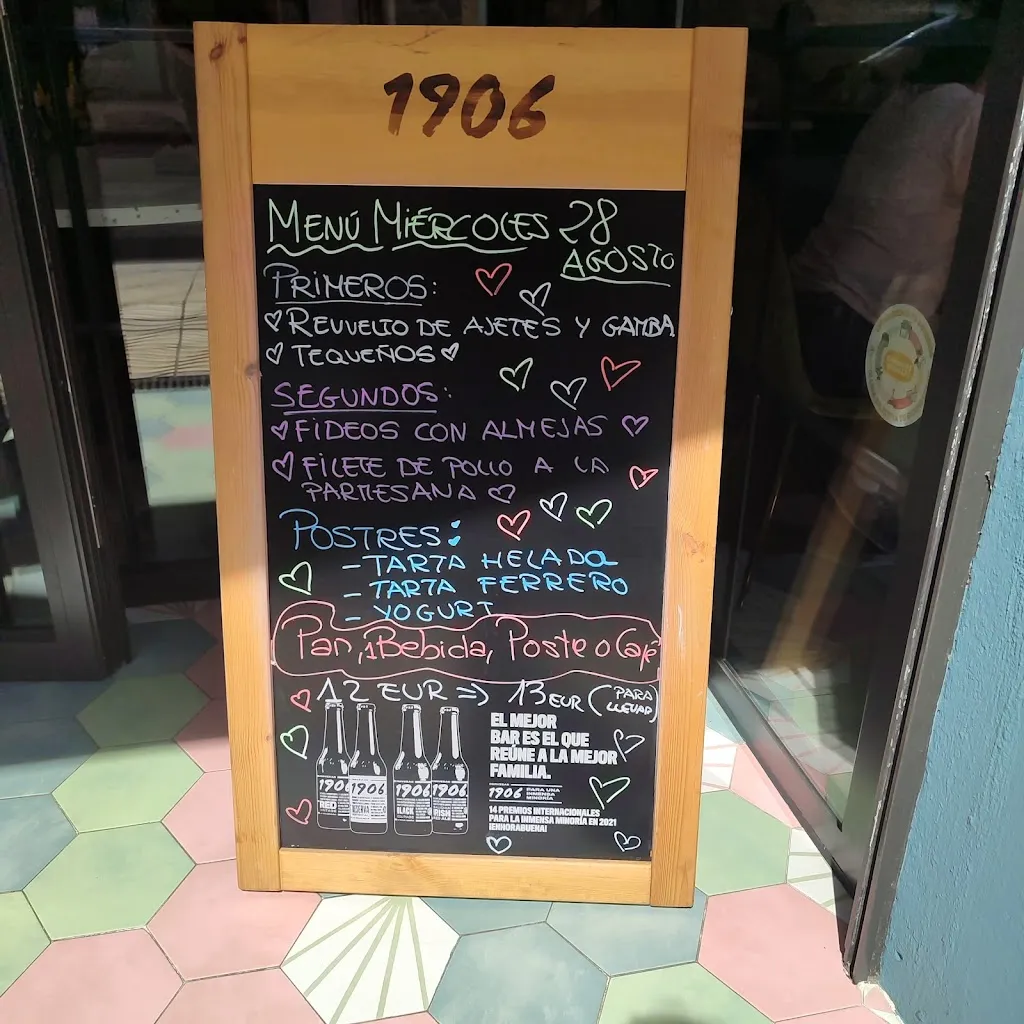 1906
MENÚ MIÉRCOLES 28
AGOSTO
PRIMEROS:
REVUELTO DE AJETES Y GAMBA
TEQUEÑOS
SEGUNDOS:
FIDEOS CON ALMEJAS
FILETE DE POLLO A LA
PARMESANA
POSTRES:
- TARTA HELADA
- TARTA FERRERO
- YOGURT
Pan, 1Bebida, Poste o Café
12 EUR => 13 EUR (PARA
LLEVAR)
EL MEJOR
BAR ES EL QUE
REÚNE A LA MEJOR
FAMILIA.
1906 PARA UNA
INMENSA
MINORÍA
14 PREMIOS INTERNACIONALES
PARA LA INMENSA MINORÍA EN 2021
¡ENHORABUENA!
1906 1906 1906 1906
RED BLACK IRISH